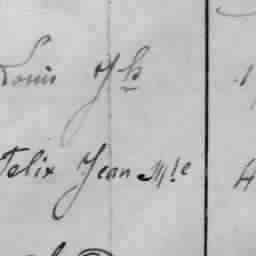 Louis Jh
Felix Jean Mie